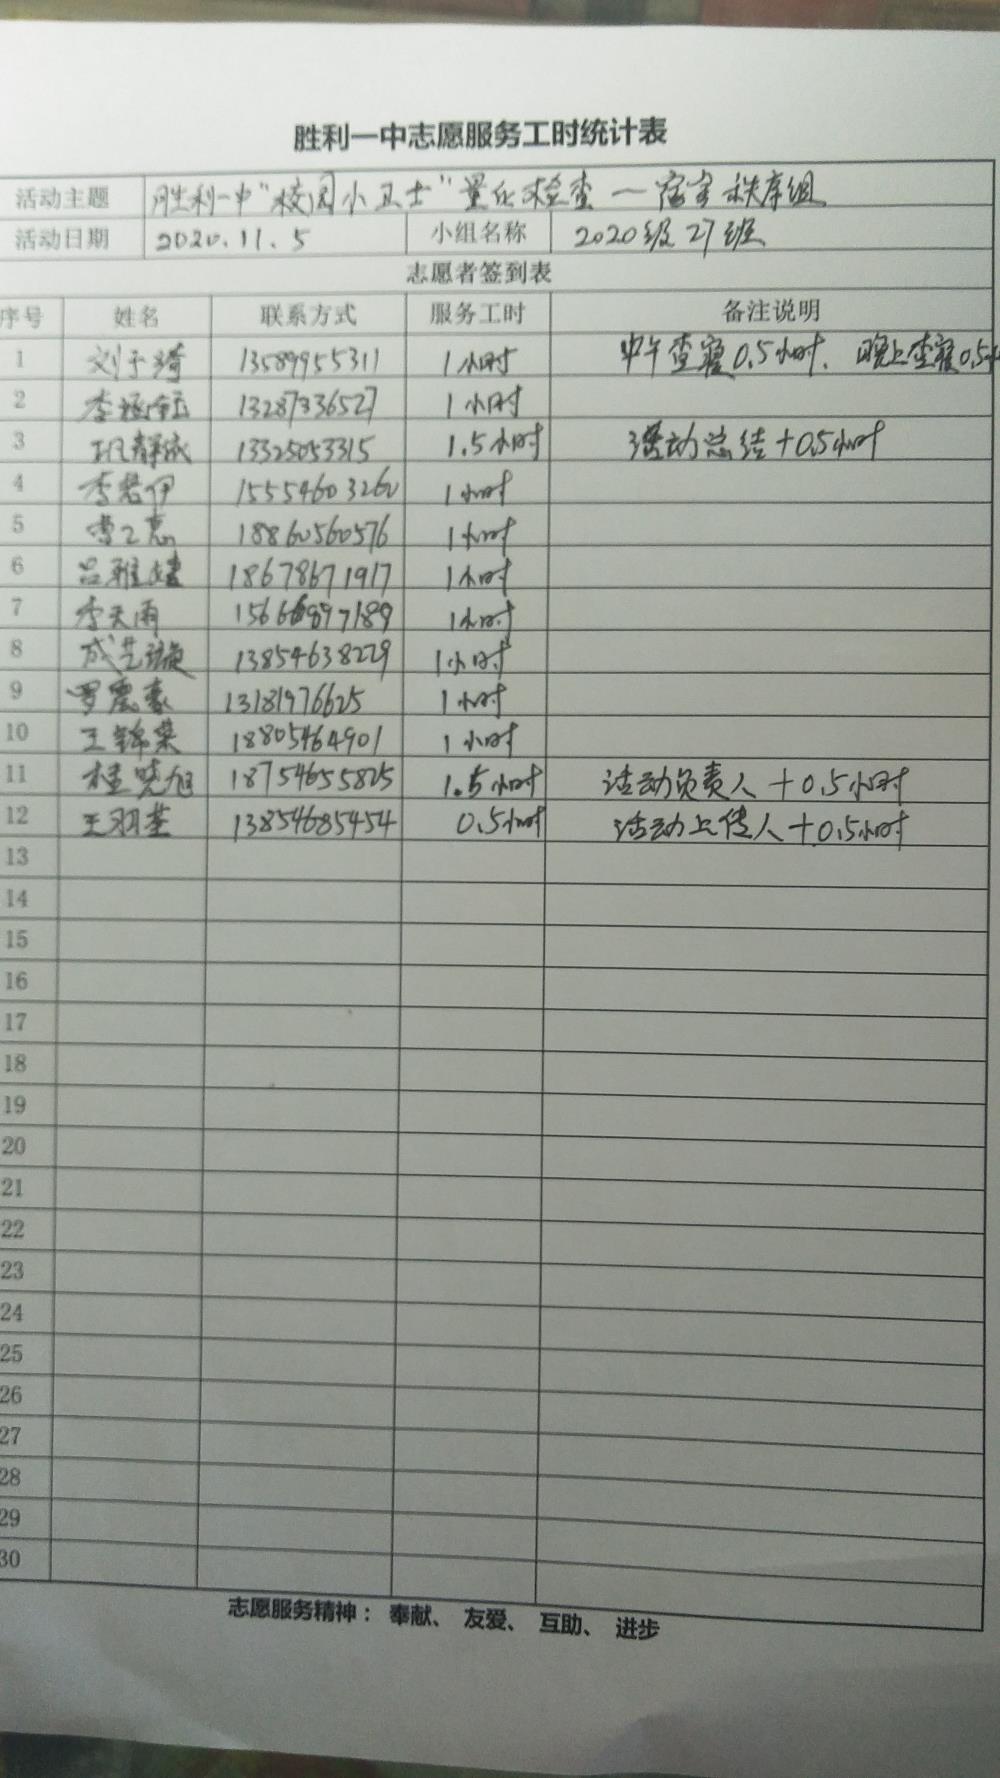 胜利一中志愿服务工时统计表
活动主题 胜利一中“校园小卫士”量化检查一宿舍秩序组
活动日期 2020.11.5 小组名称 2020级27班
志愿者签到表
序号 姓名 联系方式 服务工时 备注说明
1 刘子琦 13589955311 1小时 中午查寝0.5小时. 晚上查寝0.5
2 李 13287336527 1小时
3 巩静 13325053315 1.5小时 活动总结+0.5小时
4 李君伊 15554603260 1小时
5 曹之惠 18860560576 1小时
6 吕雅婕 18678671917 1小时
7 李天雨 1小时
8 成艺璇 13854638229 1小时
9 罗震豪 13181976625 1小时
10 王锦荣 18805464901 1小时
11 桂晓旭 18754655825 1.5小时 活动负责人+0.5小时
12 王羽茎 13854685454 0.5小时 活动上传人+0.5小时
13
14
15
16
17
18
19
20
21
22
23
24
25
26
27
28
29
30
志愿服务精神： 奉献、 友爱、 互助、 进步